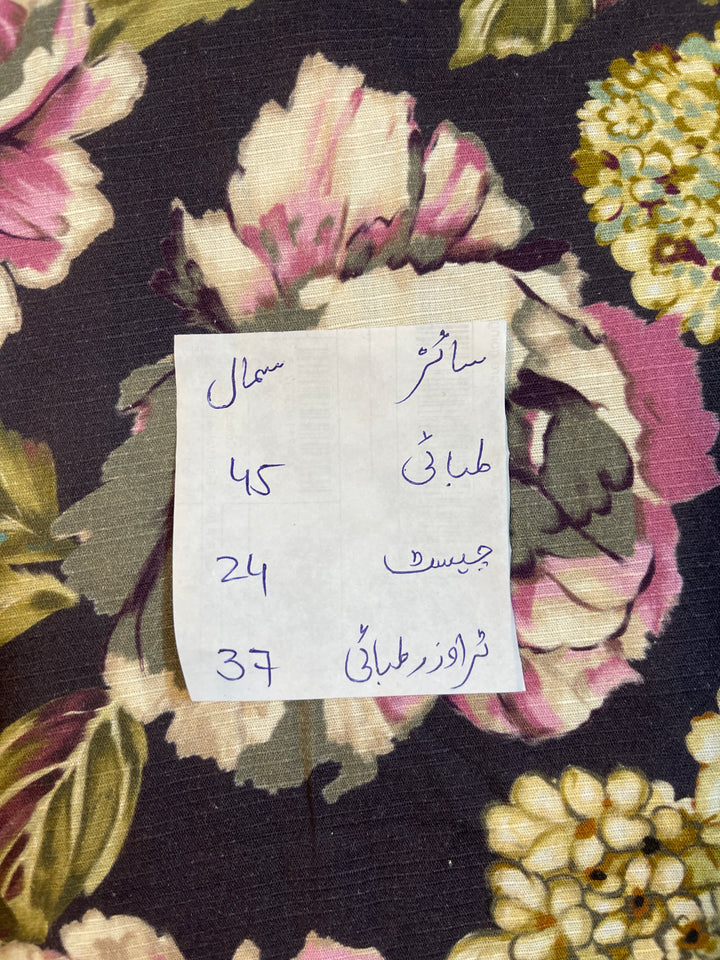 سائز سمال
لمبائی 45
چیسٹ 24
ٹراوزر لمبائی 37